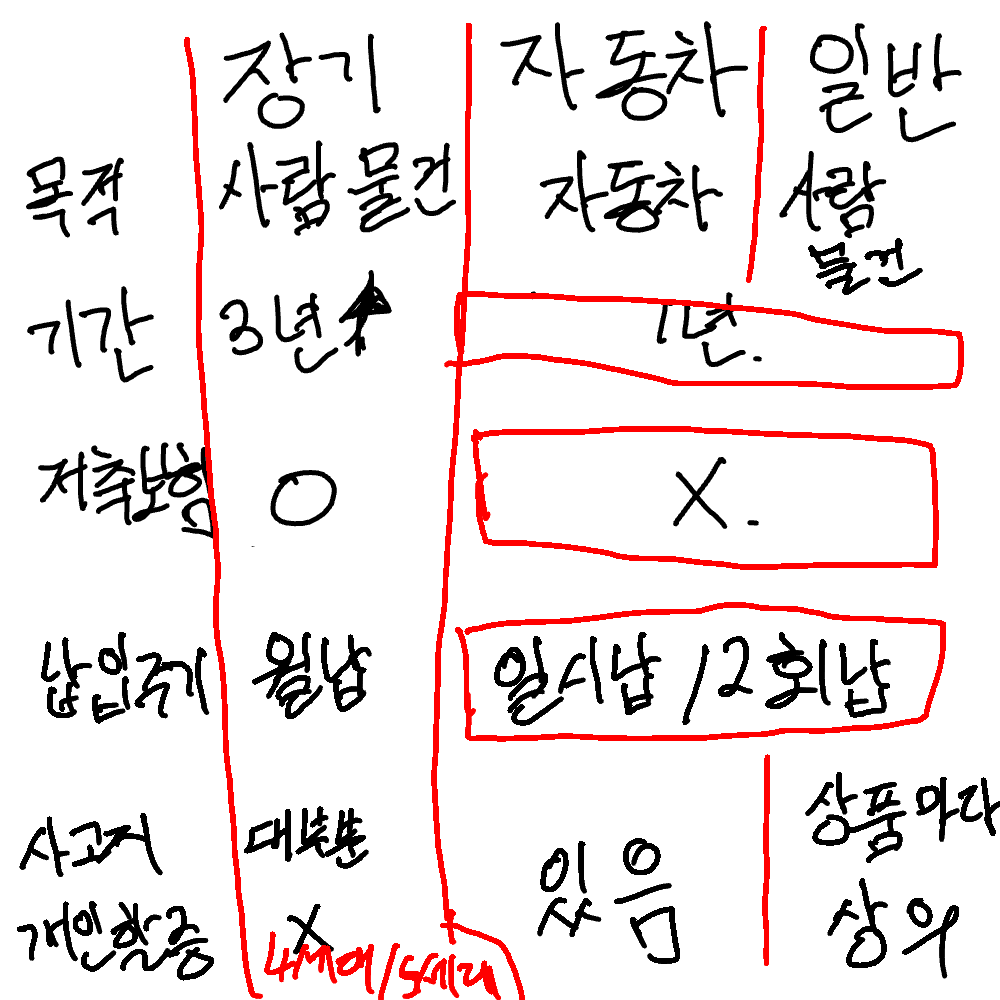 장기 자동차 일반
목적 사람 물건 자동차 사람
물건
기간 3년↑ 1년.
저축보험 O X.
납입주기 월납 일시납 / 2회납
사고시 대부분 있음 상품마다
개인할증 X 상이
4세대/5세대